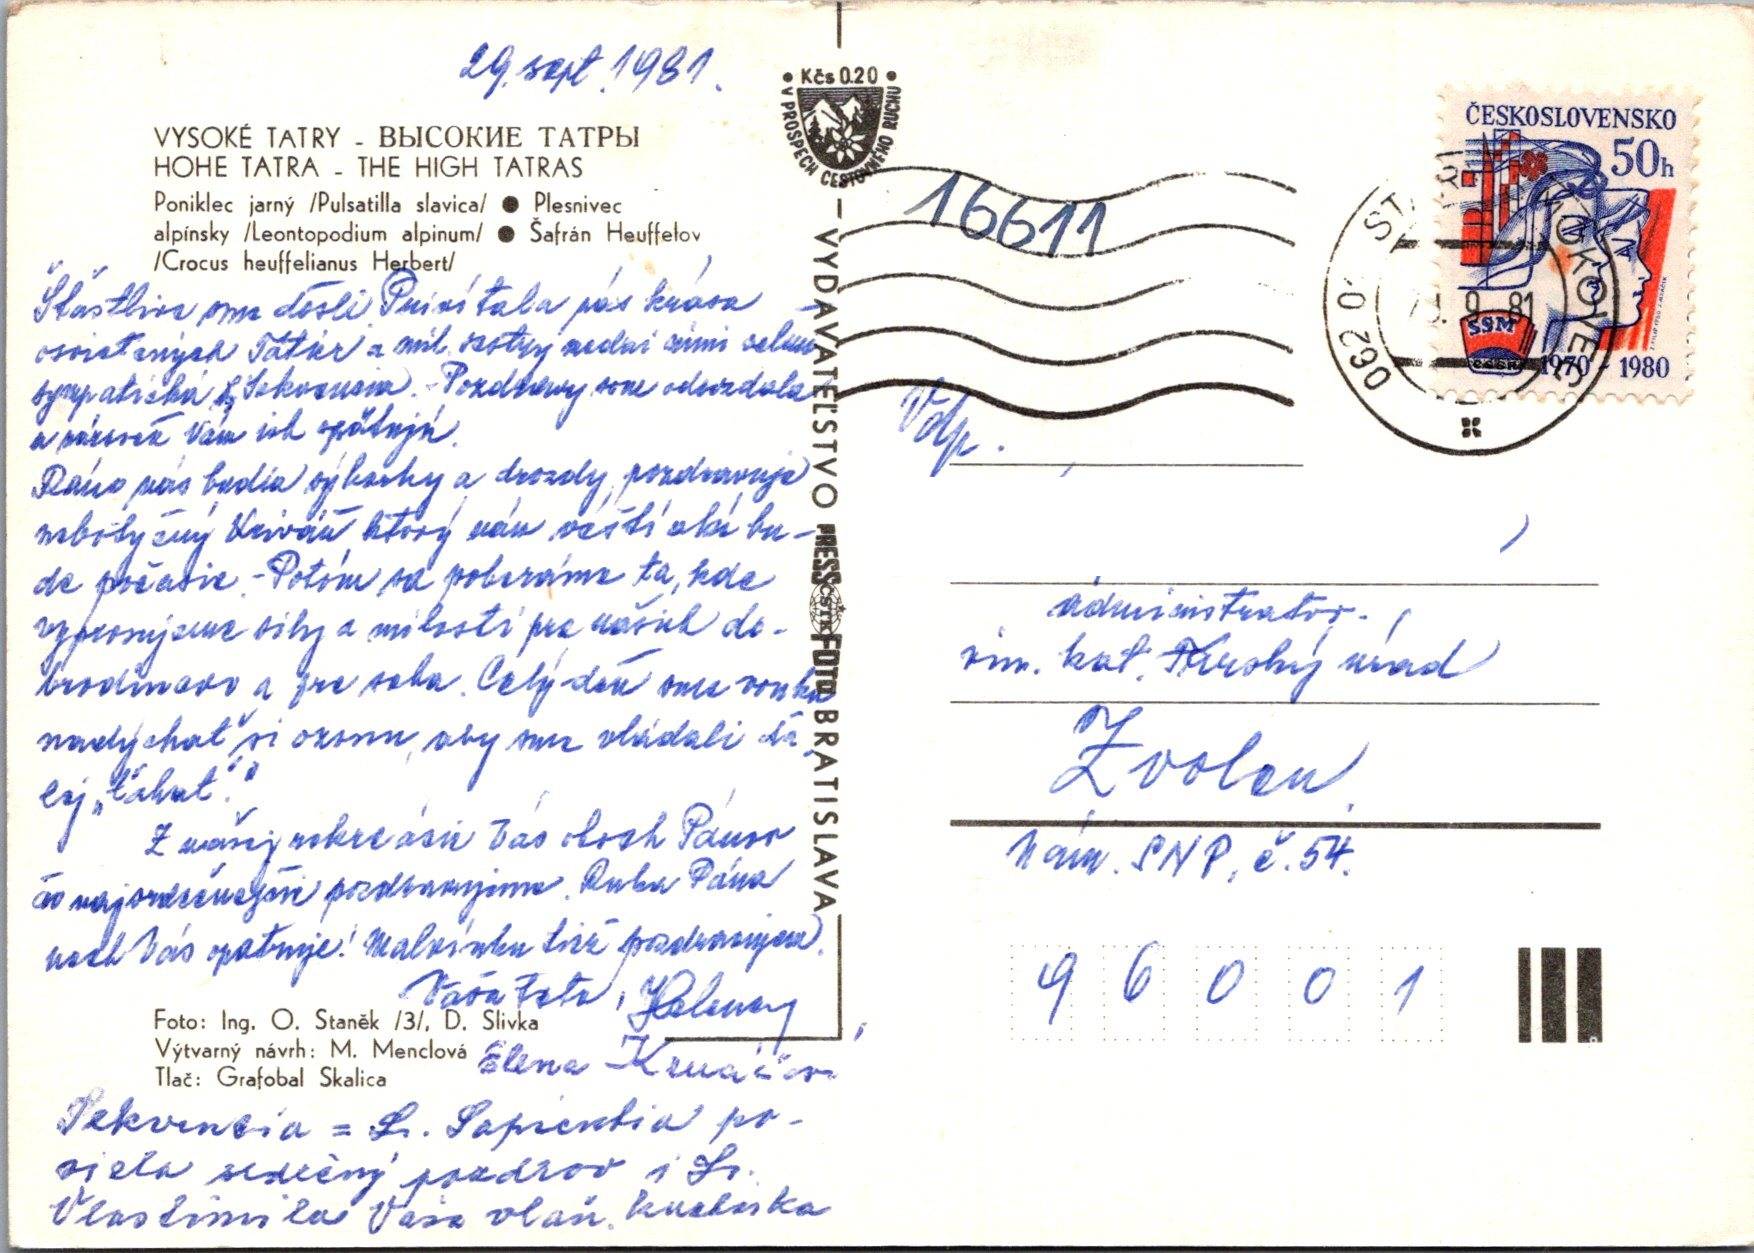 29. sept. 1981.
VYSOKÉ TATRY - ВЫСОКИЕ ТАТРЫ
HOHE TATRA - THE HIGH TATRAS
Poniklec jarný /Pulsatilla slavica/ ● Plesnivec
alpínsky /Leontopodium alpinum/ ● Šafrán Heuffelov
/Crocus heuffelianus Herbert/
Šťastlive sme došli Privítala nás krása
Tatier a mil. sestry medzi nimi velmi
sympatická Sekvencia. - Pozdravy sme odovzdala
a zároveň Vám ich opätujú.
Ráno nás budia sýkorky a drozdy, pozdravuje
nebotyčný Kriváň ktorý nám veští aké bu-
de počasie. - Potom sa poberáme ta, kde
vyprosujeme sily a milosti pre našich do-
brodincov a pre seba. Celý deň sme vonku
nadýchať si ozonu, aby sme vládali ďa-
lej „ťahať."
Z našej rekreácie Vás oboch Pánov
čo najsrdečnejšie pozdravujeme. Ruka Pána
nech Vás opatruje! Malvínku tiež pozdravujem.
Vaša teta, Heleny
Elena
Foto: Ing. O. Staněk /3/, D. Slivka
Výtvarný návrh: M. Menclová
Tlač: Grafobal Skalica
Sekvencia = S. Sapientia po-
siela srdečný pozdrav i S.
Vlastimila Vaša vlaň. kuchárka
Kčs 0.20
V PROSPECH CESTOVNÉHO RUCHU
VYDAVATEĽSTVO PRESSFOTO BRATISLAVA
ČSTK
16611
ČESKOSLOVENSKO
50h
SSM
ČSSR
1970 - 1980
062 01 STARÝ SMOKOVEC
9. 81
Vdp.
administrator.
rím. kat. Farský úrad
Zvolen
Nám. SNP, č. 54.
96001